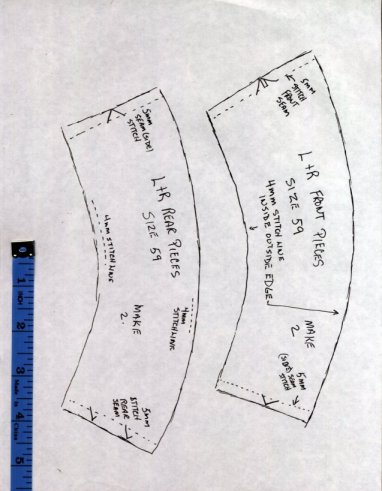 5mm
STITCH
FRONT
SEAM
L+R FRONT PIECES
SIZE 59
4mm STITCH LINE
INSIDE OUTSIDE EDGE
MAKE
2
5mm
(SIDE) SEAM
STITCH
5mm
SEAM (SIDE)
STITCH
L+R REAR PIECES
SIZE 59
4mm STITCH LINE
MAKE
2.
4mm
STITCH LINE
5mm
STITCH
REAR
SEAM
1
INCH
2
3
Made in
4
China
5